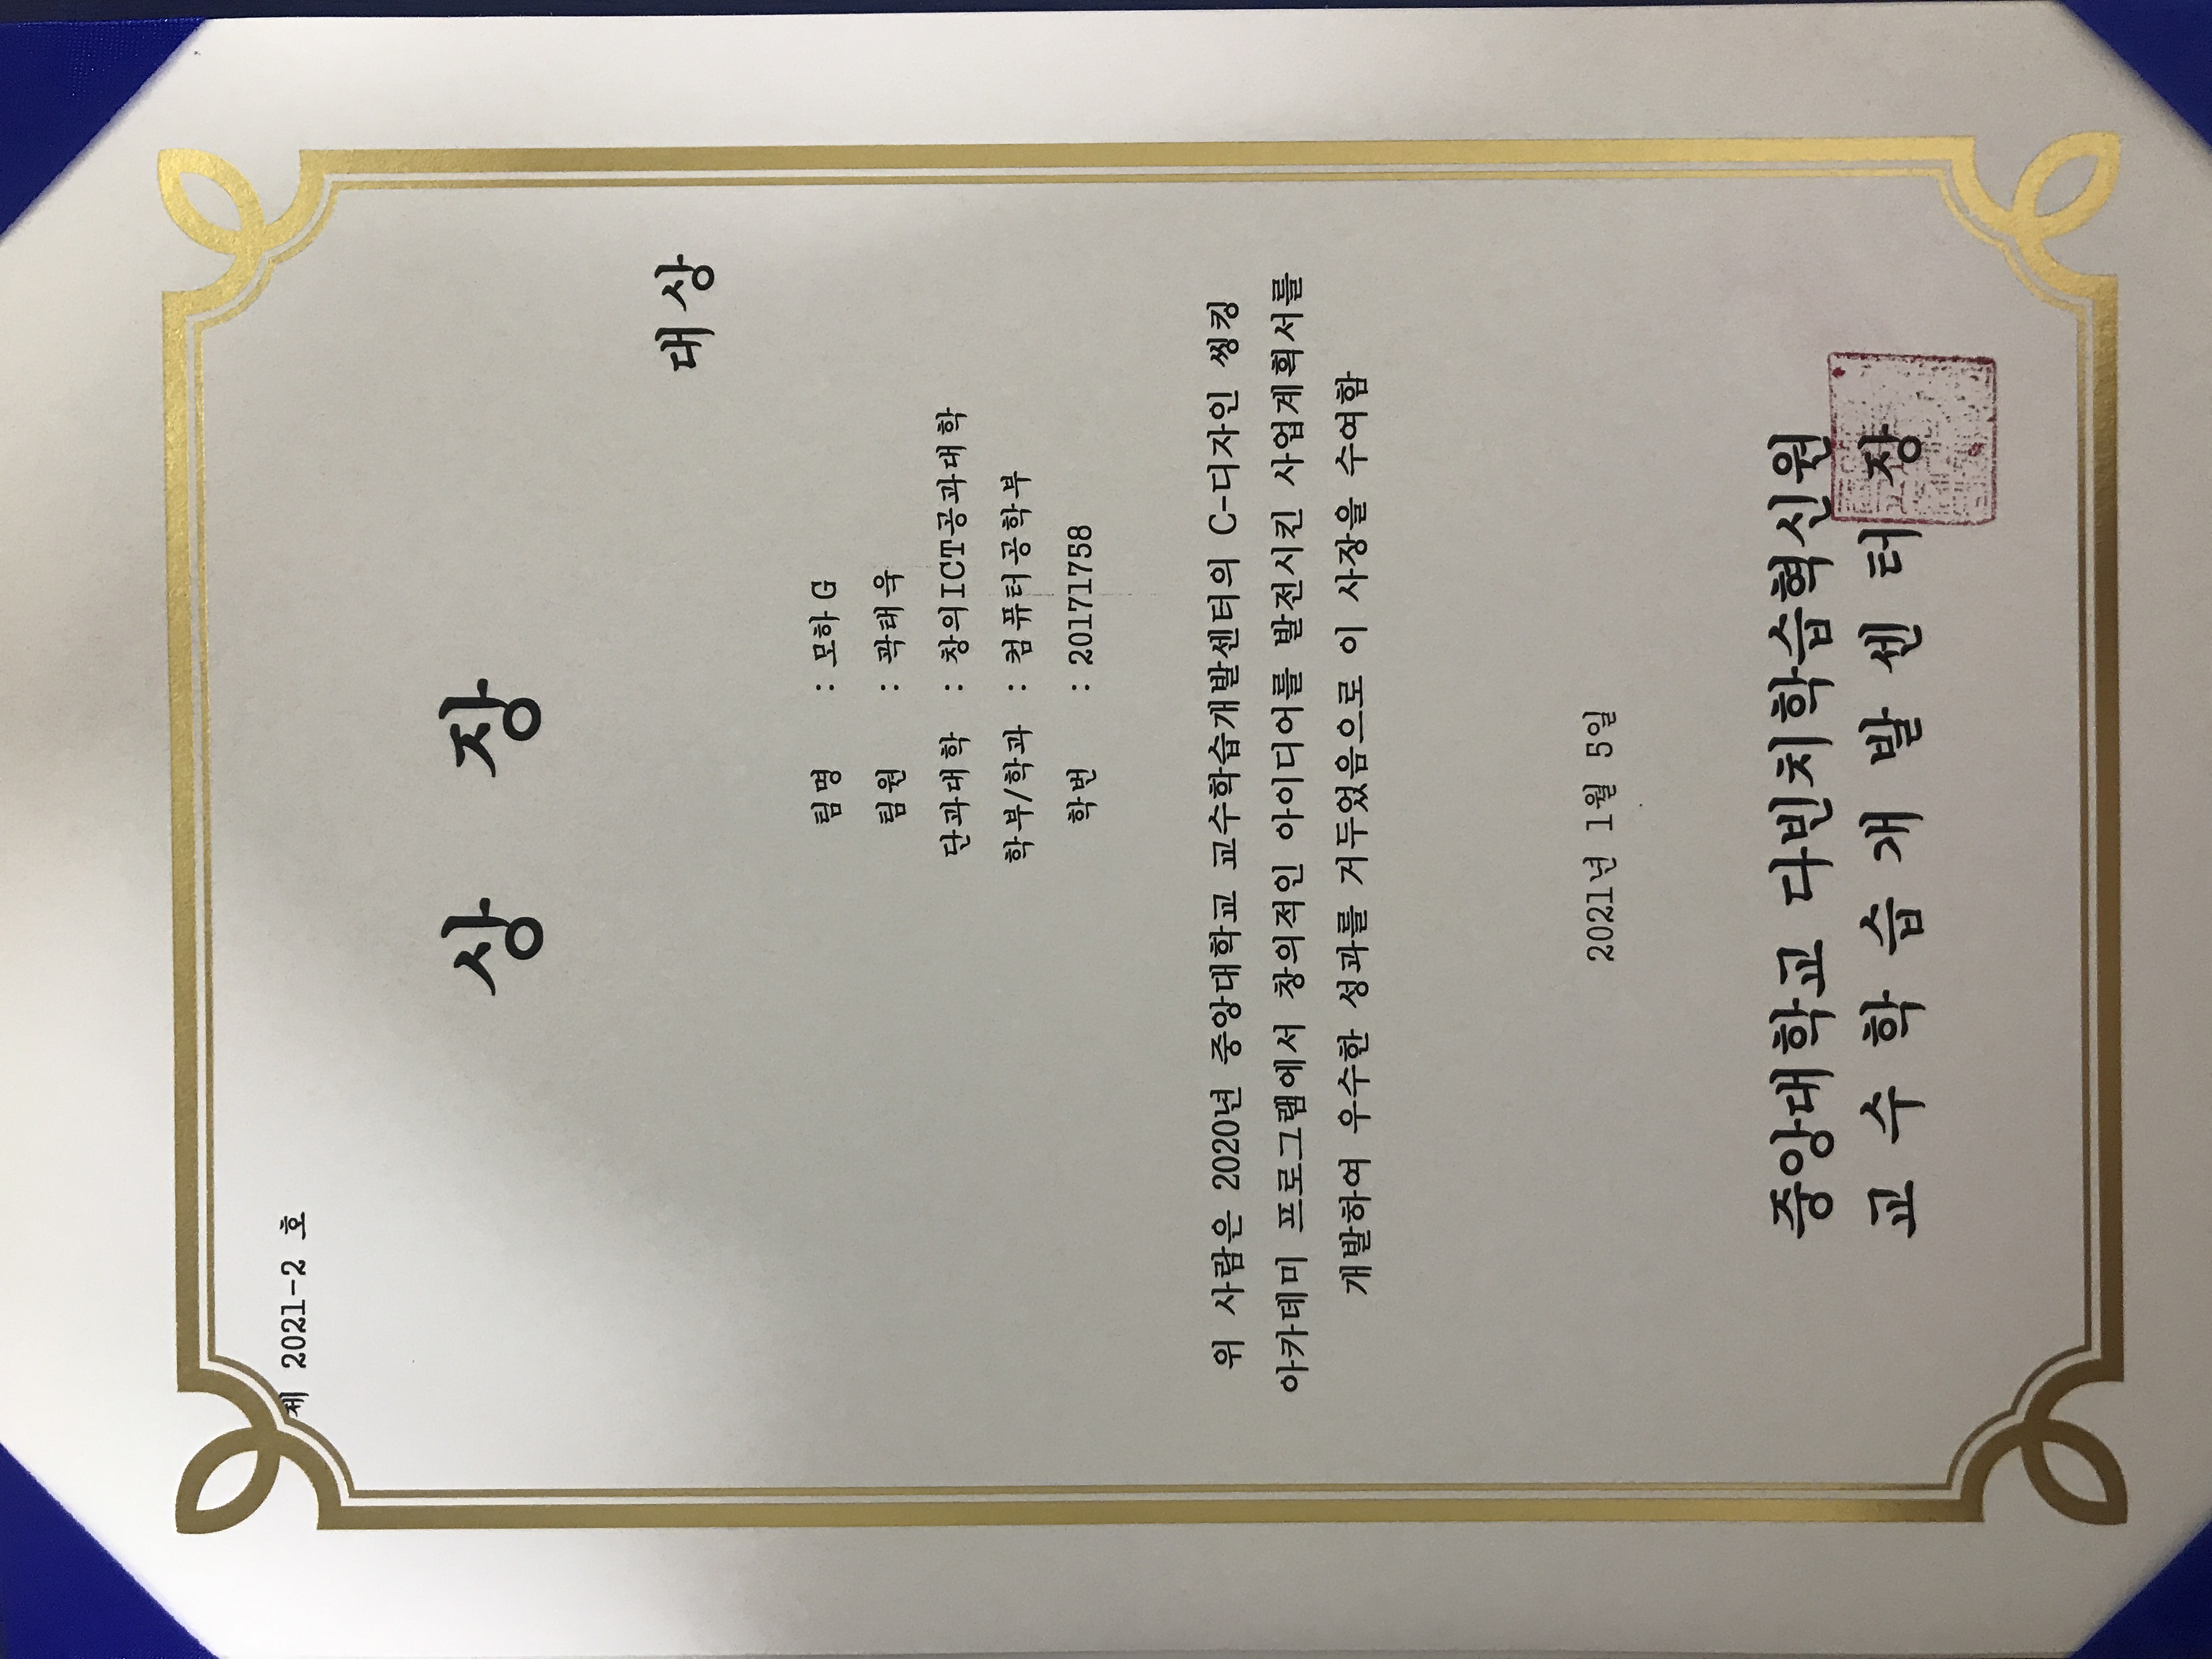 제 2021-2 호
상 장
대상
팀명 : 모하G
팀원 : 곽태욱
단과대학 : 창의ICT공과대학
학부/학과 : 컴퓨터공학부
학번 : 20171758
위 사람은 2020년 중앙대학교 교수학습개발센터의 C-디자인 씽킹
아카데미 프로그램에서 창의적인 아이디어를 발전시킨 사업계획서를
개발하여 우수한 성과를 거두었음으로 이 사장을 수여함
2021년 1월 5일
중앙대학교 다빈치학습혁신원
교 수 학 습 개 발 센 터 장